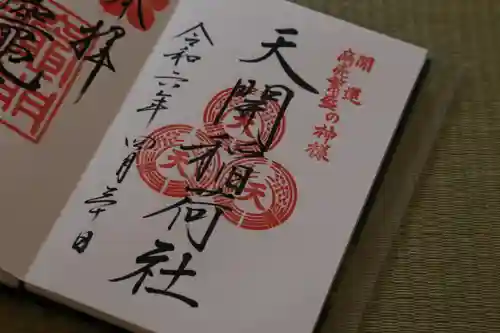 開運
商売繁盛の神様
天開稲荷社
天
天
天
令和六年 四月三十日
奉拝